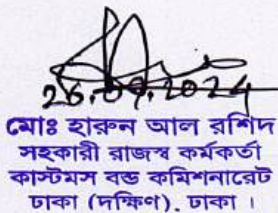 26.09.2024
মোঃ হারুন আল রশিদ
সহকারী রাজস্ব কর্মকর্তা
কাস্টমস বন্ড কমিশনারেট
ঢাকা (দক্ষিণ), ঢাকা ।